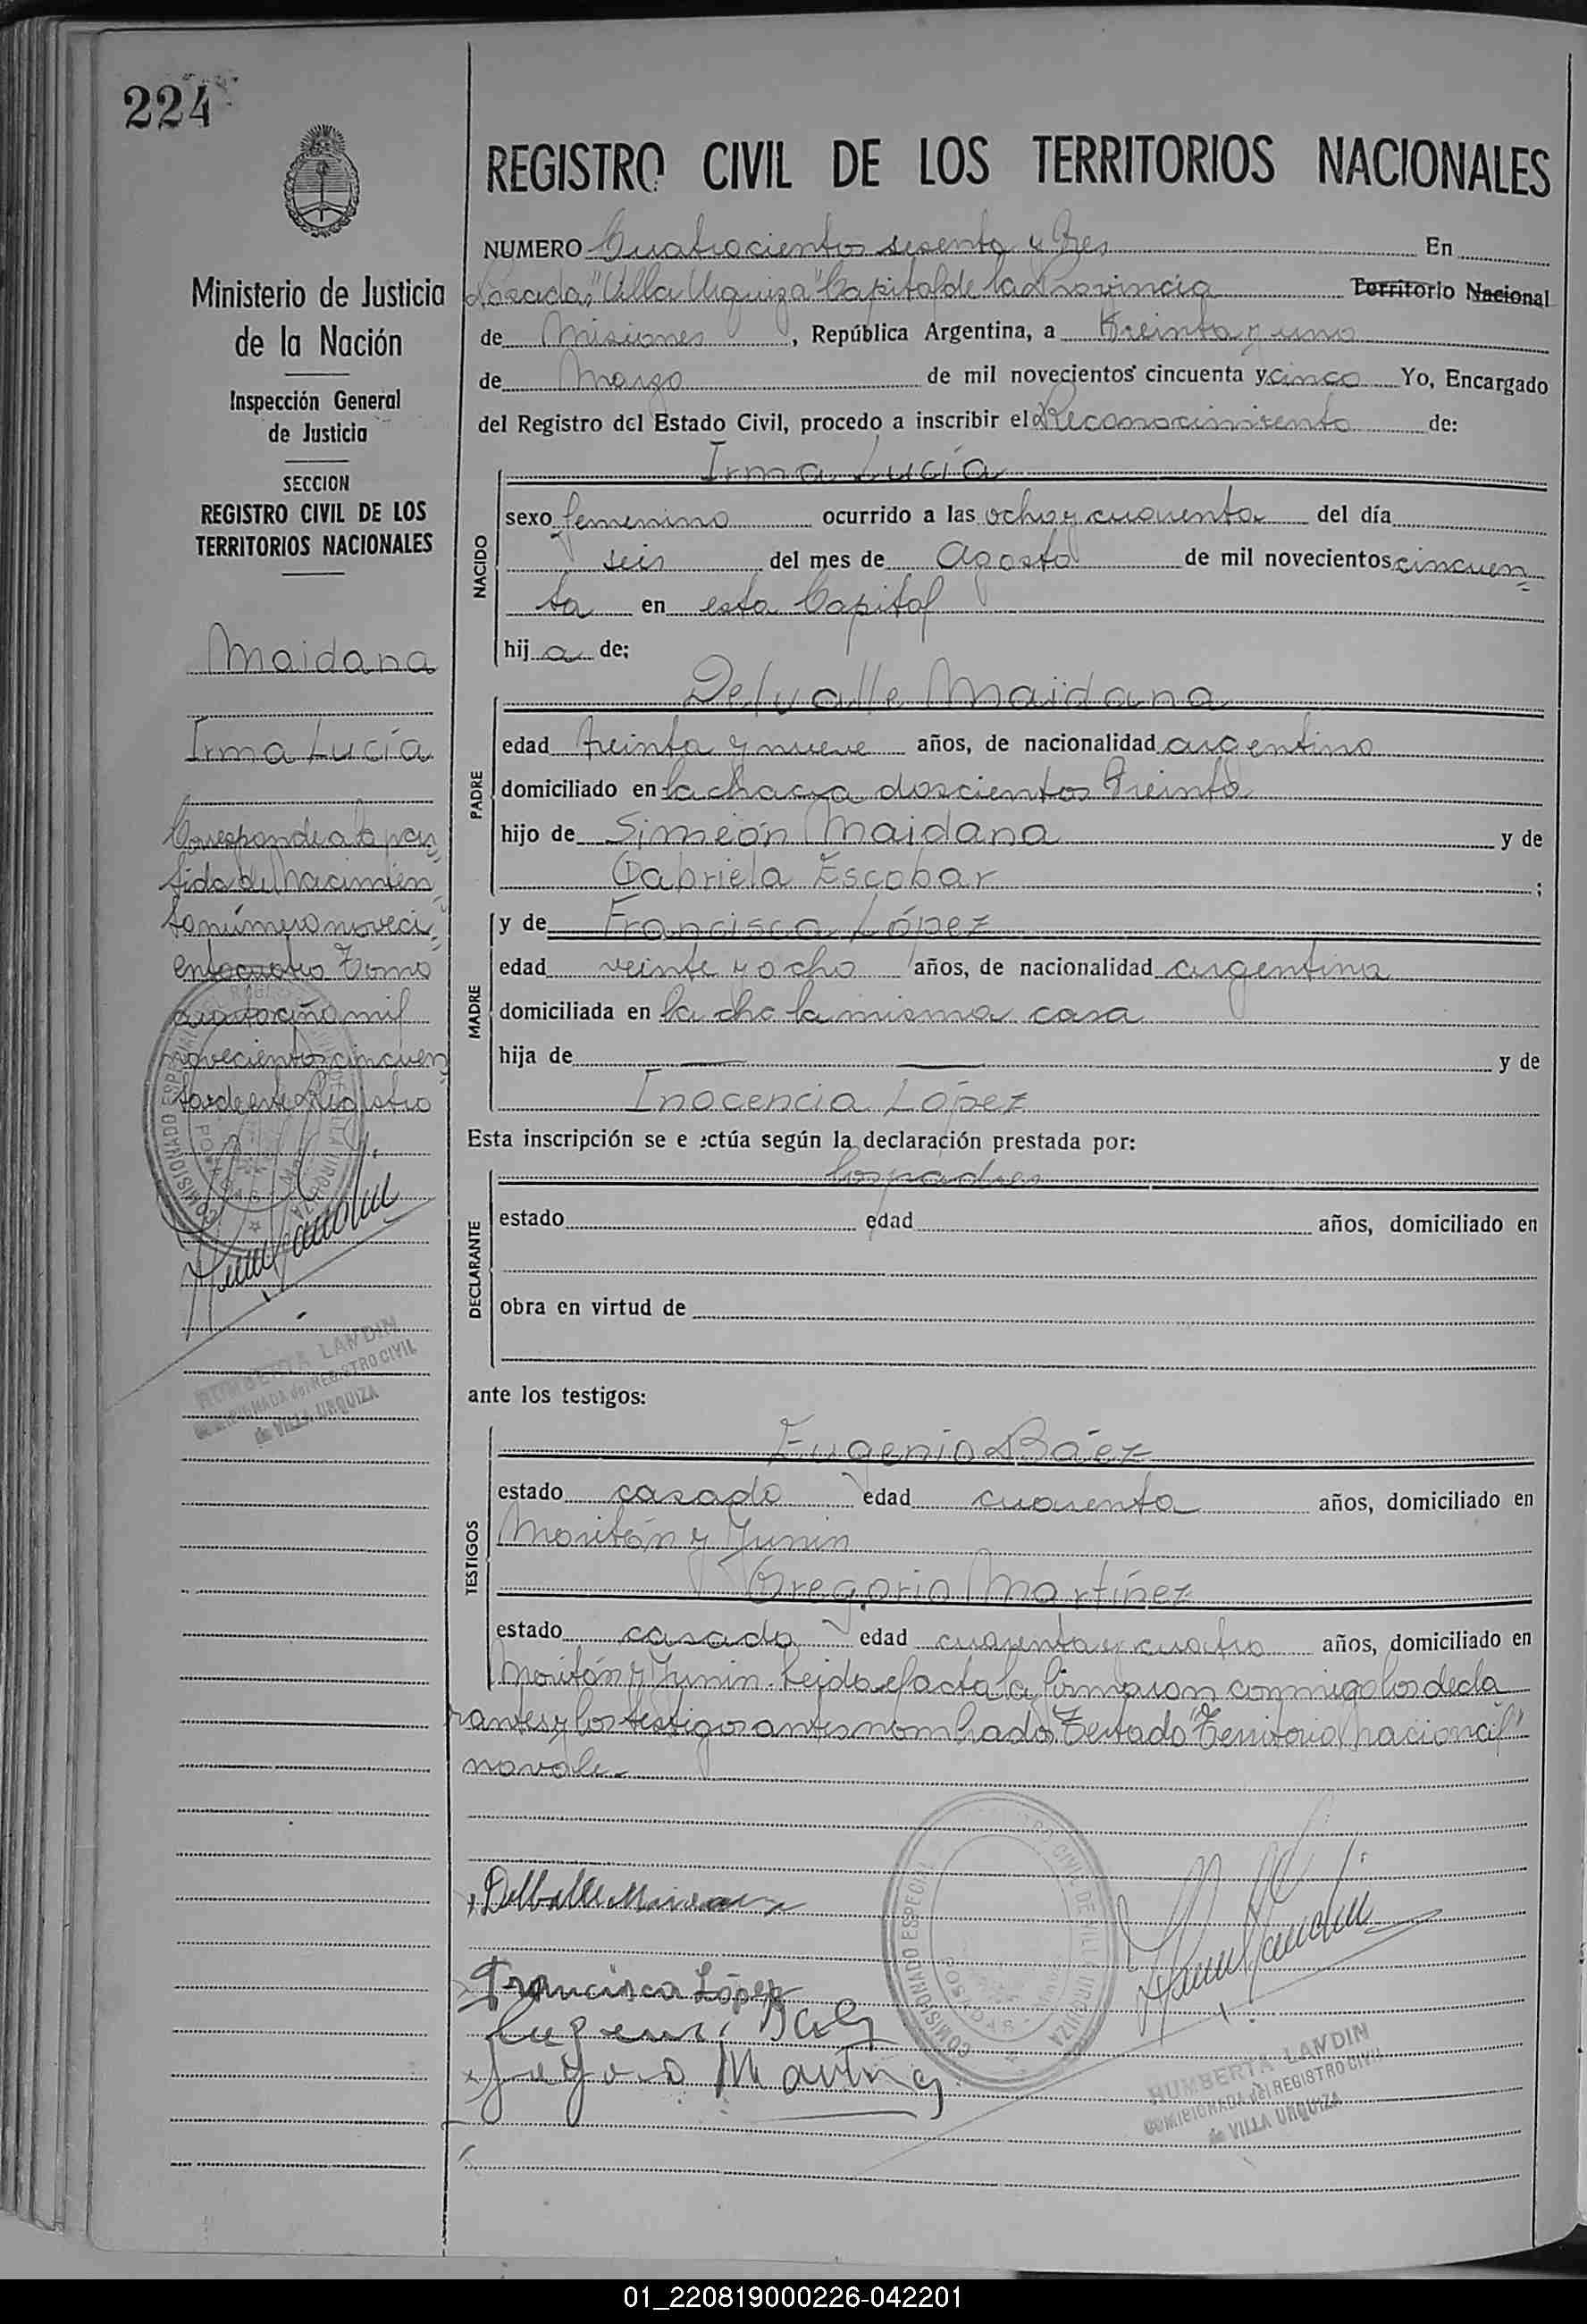 224
REGISTRO CIVIL DE LOS TERRITORIOS NACIONALES
Ministerio de Justicia
de la Nación
Inspección General
de Justicia
SECCION
REGISTRO CIVIL DE LOS
TERRITORIOS NACIONALES
Maidana
Irma Lucía
Corresponde a la par
tida de Nacimien
to número noveci
entos cuatro Tomo
cuarto año mil
novecientos cincuen
ta de este Registro
HUMBERTA LANDIN
COMISIONADA del REGISTRO CIVIL
de VILLA URQUIZA
NUMERO Cuatrocientos sesenta y Tres En
Posadas "Villa Urquiza" Capital de la Provincia Territorio Nacional
de Misiones, República Argentina, a treinta y uno
de Marzo de mil novecientos cincuenta y cinco Yo, Encargado
del Registro del Estado Civil, procedo a inscribir el Reconocimiento de:
NACIDO
Irma Lucía
sexo femenino ocurrido a las ocho y cuarenta del día
seis del mes de Agosto de mil novecientos cincuen
ta en esta Capital
hij a de:
PADRE
Delvalle Maidana
edad treinta y nueve años, de nacionalidad argentino
domiciliado en la chacra doscientos treinta
hijo de Simeón Maidana y de
Gabriela Escobar;
MADRE
y de Francisca López
edad veinte y ocho años, de nacionalidad argentina
domiciliada en la misma casa
hija de — — y de
Inocencia López
Esta inscripción se e ectúa según la declaración prestada por:
DECLARANTE
los padres
estado edad años, domiciliado en
obra en virtud de
ante los testigos:
TESTIGOS
Eugenio Báez
estado casado edad cuarenta años, domiciliado en
y Junin
Gregorio Martínez
estado casado edad cuarenta y cuatro años, domiciliado en
y Junin. Leida el acta la firmaron conmigo los decla
rantes y los testigos antes nombrados Testado "Territorio Nacional"
no vale.-
Delballe Maidana
Francisca López
Eugenio Baez
Gregorio Martinez
COMISIONADO ESPECIAL REGISTRO CIVIL DE VILLA URQUIZA
POSADAS
HUMBERTA LANDIN
COMISIONADA del REGISTRO CIVIL
de VILLA URQUIZA
01_220819000226-042201